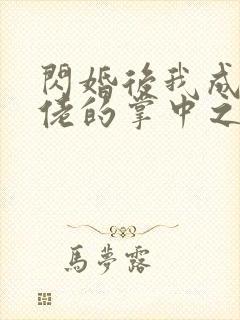 閃婚後我成
佬的掌中之
馬夢露